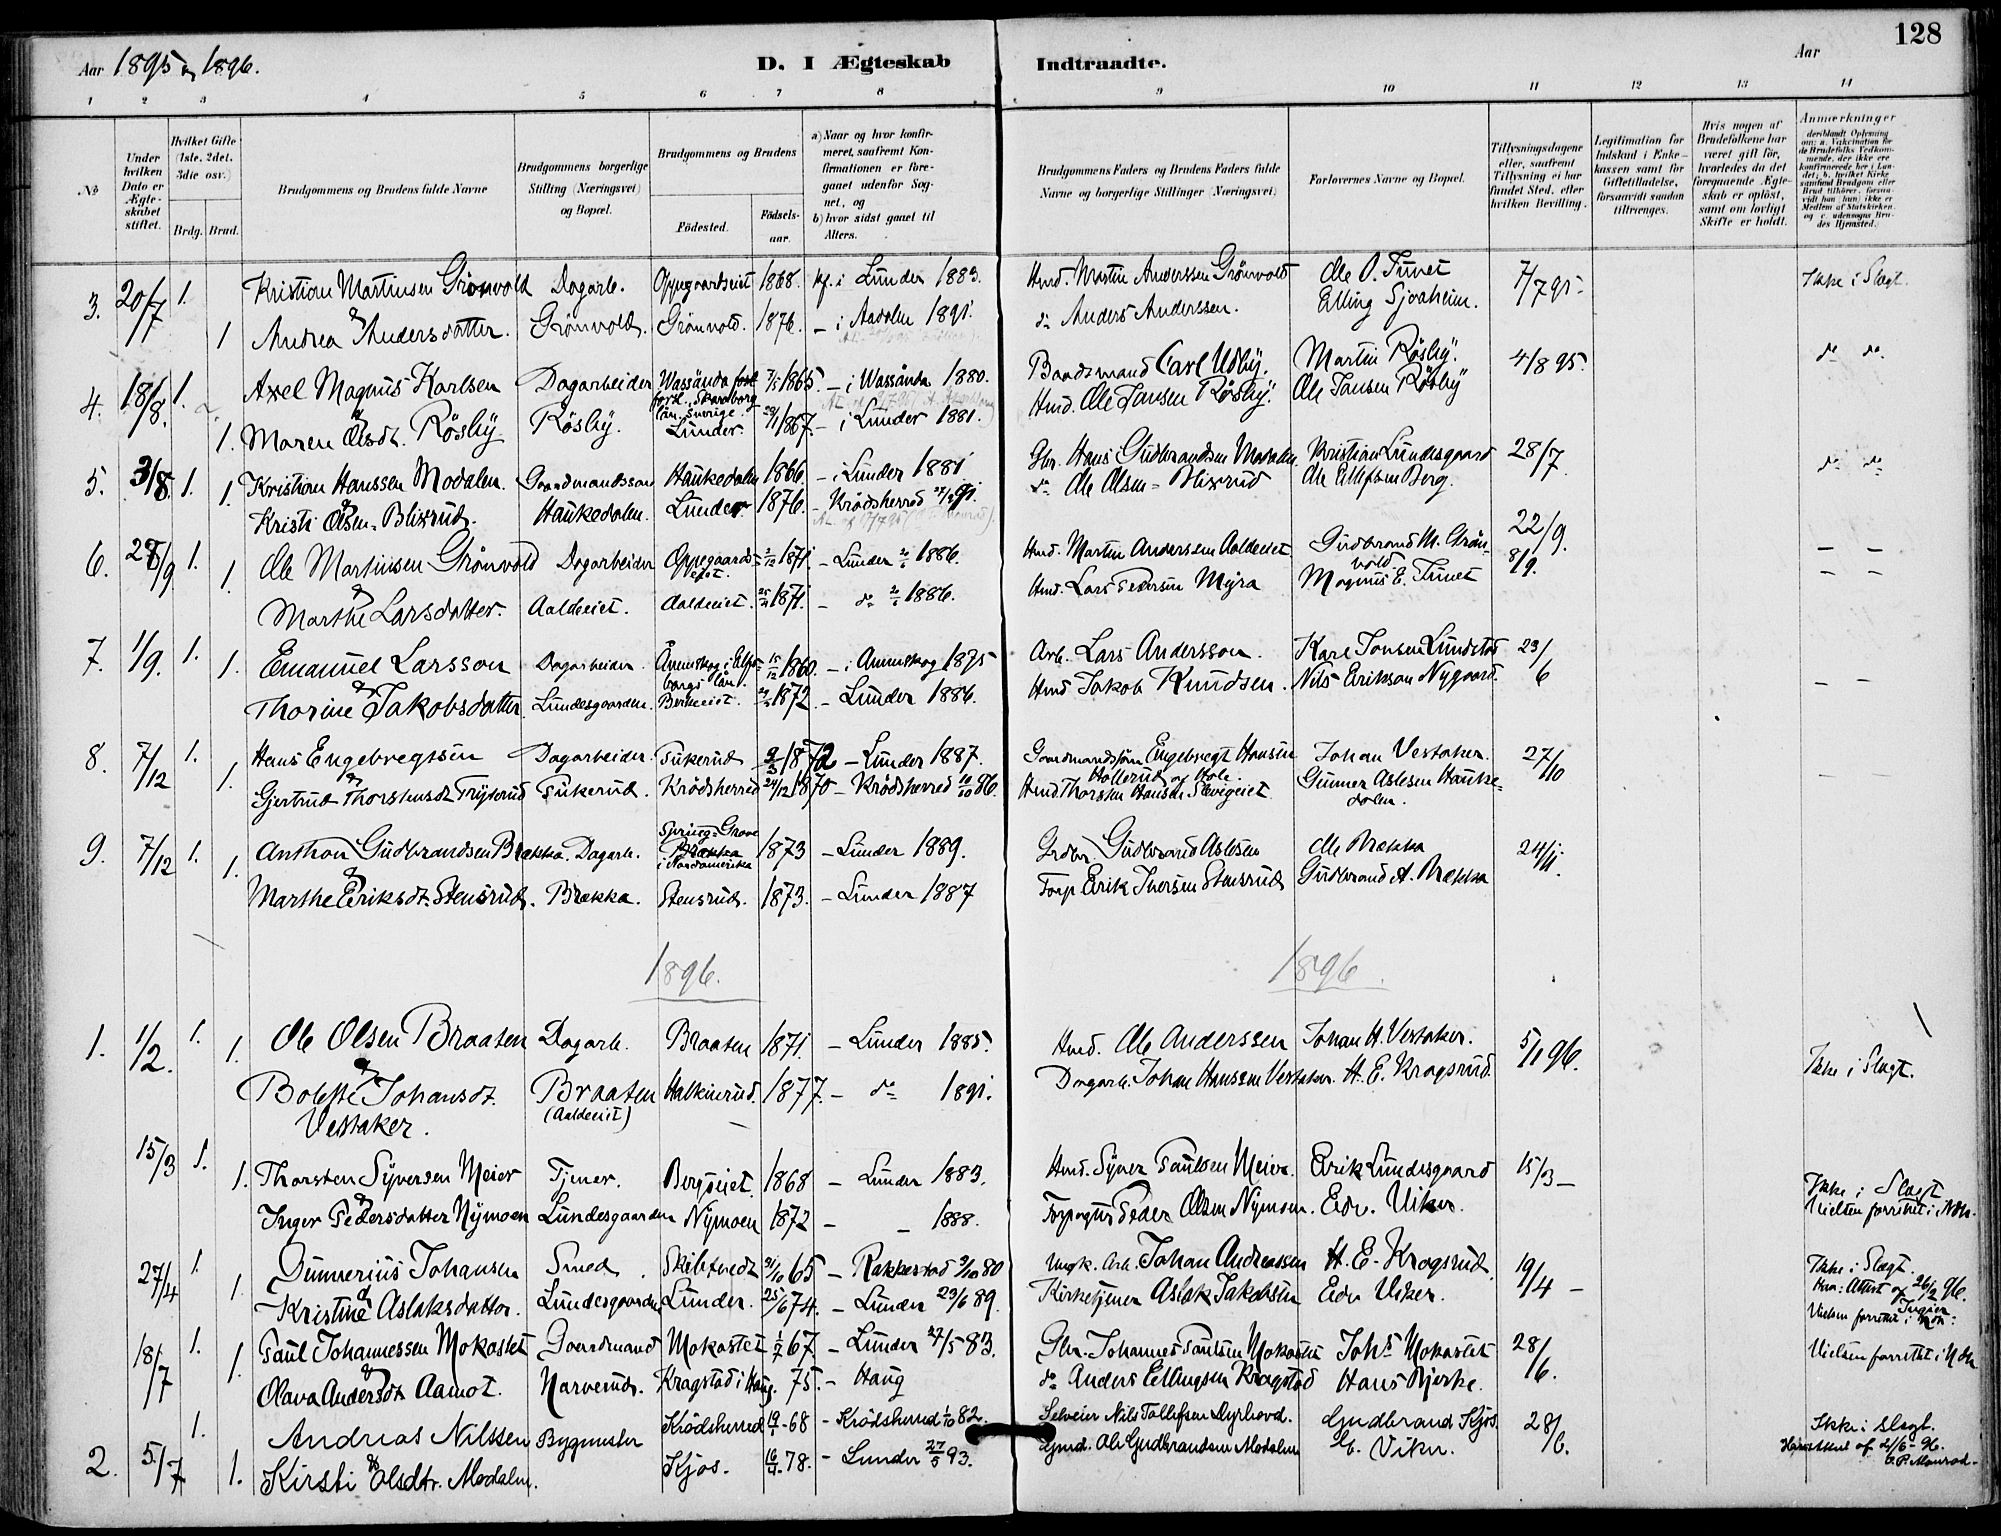 128
Aar 1895 og 1896.
D. I Ægteskab Indtraadte.
Aar
1 2 3 4 5 6 7 8 9 10 11 12 13 14
No
Under hvilken Dato er Ægteskabet stiftet.
Hvilket Gifte (1ste, 2det, 3die osv.)
Brdg. Brud.
Brudgommens og Brudens fulde Navne
Brudgommens borgerlige Stilling (Næringsvei) og Bopæl.
Brudgommens og Brudens
Fødested.
Fødselsaar.
a) Naar og hvor konfirmeret, saafremt Konfirmationen er foregaaet udenfor Sognet, og
b) hvor sidst gaaet til Alters.
Brudgommens Faders og Brudens Faders fulde Navne og borgerlige Stillinger (Næringsvei)
Forlovernes Navne og Bopæl.
Tillysningsdagene eller, saafremt Tillysning ei har fundet Sted, efter hvilken Bevilling.
Legitimation for Indskud i Enkekassen samt for Giftetilladelse, forsaavidt saadan tiltrænges.
Hvis nogen af Brudefolkene har været gift før, hvorledes da det foregaaende Ægteskab er opløst, samt om lovligt Skifte er holdt.
Anmærkninger
3. 20/7 1. Kristian Martinsen Grönvold Dagarb. Oppegaardseiet 1868. kf. i Lunder 1883. Hmd. Martin Anderssen Grönvold Ole P. Tunet 7/7 95. Ikke i Slægt.
& 1 Andrea Andersdatter. Grönvold. Grönvold. 1876. – i Aadalen 1891. do Anders Anderssen. Elling Sjoaheim.
4. 18/8. 1. Axel Magnus Karlsen Dagarbeider Wassända 1865. – i Wassända 1880. Baadsmand Carl Udby. Martin Rösby. 4/8 95. do do.
forl. Skaraborg län. Sverige.
& 1. Maren Olsdt. Rösby Rösby. Lunder. 1867. – i Lunder 1881. Hmd. Ole Jansen Rösby. Ole Jansen Rösby
5. 3/8. 1. Kristian Hanssen Modalen. Gaardmandssøn Haukedalen 1866. – i Lunder 1881 Gbr. Hans Gudbrandsen Modalen. Kristian Lundesgaard 28/7. do do
& 1. Kristi Olsen-Blixrud. Haukedalen. Lunder 1876. – Krødsherred 91. do Ole Olsen-Blixrud Ole Ellefsen Berg.
6. 27/9. 1. Ole Martinsen Grönvold Dagarbeider Oppegaardseiet. 1871. – Lunder 1886. Hmd. Martin Andersen Aaldeeiet Gudbrand M. Grönvold 22/9. – –
& 1. Marthe Larsdatter. Aaldeeiet. Aaldeeiet. 1871. – do 1886. Hmd. Lars Pedersen Myra Magnus E. Tunet 8/9. – –
7. 1/9. 1. Emanuel Larsson Dagarbeider. Ånimskog i Elfsborgs län. 15/12 1860. – i Ånimskog 1875 Arb. Lars Andersson. Karl Jonsen Lundstad 23/6
& 1. Thorine Jakobsdatter. Lundesgaarden. Berkeeiet. 1872. – Lunder 1886. Hmd Jakob Knudsen. Nils Erikson Nygaard. – –
8. 7/12 1. Hans Engebregtsen Dagarbeider. Tukerud 1872 – Lunder 1887. Gaardmandssøn Engebregt Hansen Hollerud af Hole. Johan Vestaker. 27/10
& 1. Gjertrud Thorstensdt Trytterud Tukerud. Krødsherred 24/12 1870 – Krødsherred 10/10 86. Hmd. Thorsten Hansen Slevigeiet Gunner Aslesen Haukedalen. –
9. 7/12 1. Anthon Gudbrandsen Brekka. Dagarb. Spring-Grove i Nordamerika 1873 – Lunder 1889. Grdbr. Gudbrand Aslesen Ole Brekka 24/11.
& 1. Marthe Eriksdt. Stensrud. Brekka. Stensrud. 1873. – Lunder 1887 Torp Erik Iversen Stensrud Gudbrand A. Brekka
1896. 1896.
1. 1/2. 1. Ole Olsen Braaten Dagarb. Braaten 1871. – Lunder 1885. Hmd. Ole Anderssen Johan H. Vestaker. 5/1 96.
& 1. Bolette Johansdt. Vestaker. Braaten (Aaldeeiet) Halkinrud. 1877. – do 1891. Dagarb. Johan Hanssen Vestaker. H. E. Kragsrud. Ikke i Slægt.
15/3 1. Thorsten Syversen Meier Tjener. Bergseiet. 1868 – Lunder 1883. Hmd. Syver Paulsen Meier. Erik Lundesgaard 15/3 – Ikke i Slægt
& 1. Inger Pedersdatter Nymoen Lundesgaarden Nymoen 1872 – – 1888. Peder Olsen Nymoen. Edv. Viker. Vielsen forrettet i Nor.
27/4 1. Gunnerius Johansen Smed Skibtvedt 31/10 65 – Rakkestad 3/10 80 Ungk. Arb. Johan Andreassen H. E. Kragsrud 19/4 – Ikke i Slægt.
& 1. Kristine Aslaksdatter. Lundesgaarden Lunder. 25/6 74. – Lunder 29/6 89. Kirketjener Aslak Jakobsen Edv Viker.
18/7 1. Paul Johannessen Mokastet Gaardmand Mokastet 67. – Lunder 27/5 83. Gbr. Johannes Paulsen Mokastet Johs Mokastet 28/6. Vielsen forrettet i Nor.
& 1. Olava Andersdt Aamot. Narverud. Kragstad i Haug. 75. – Haug do Anders Ellingsen Kragstad Hans Bjerke.
2. 5/7 1. Andreas Nilssen Bygmester Krødsherred 68 – Krødsherred 1/10 82. Selveier Nils Tollefsen Dyrhovd. Gudbrand Kjos 28/6. Ikke i Slægt.
& 1. Kirsti Olsdtr. Modalen. Kjos. 78. – Lunder 93. Gmd. Ole Gudbrandsen Modalen E. Viker.